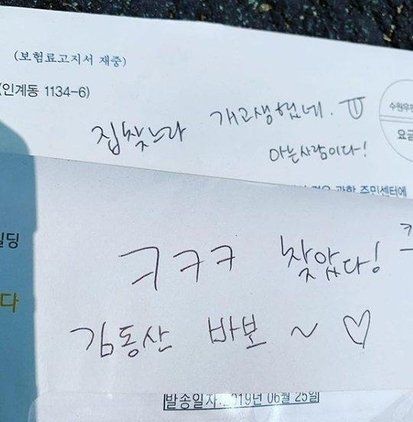 (보험료고지서 재중)
(인계동 1134-6)
집찾느라 개고생했네. ㅠ
아는사람이다!
수원우편
요금
주민센터에
빌딩
ㅋㅋㅋ 찾았다!
다
김동산 바보 ~ ♡
발송일자:2019년 06월 25일